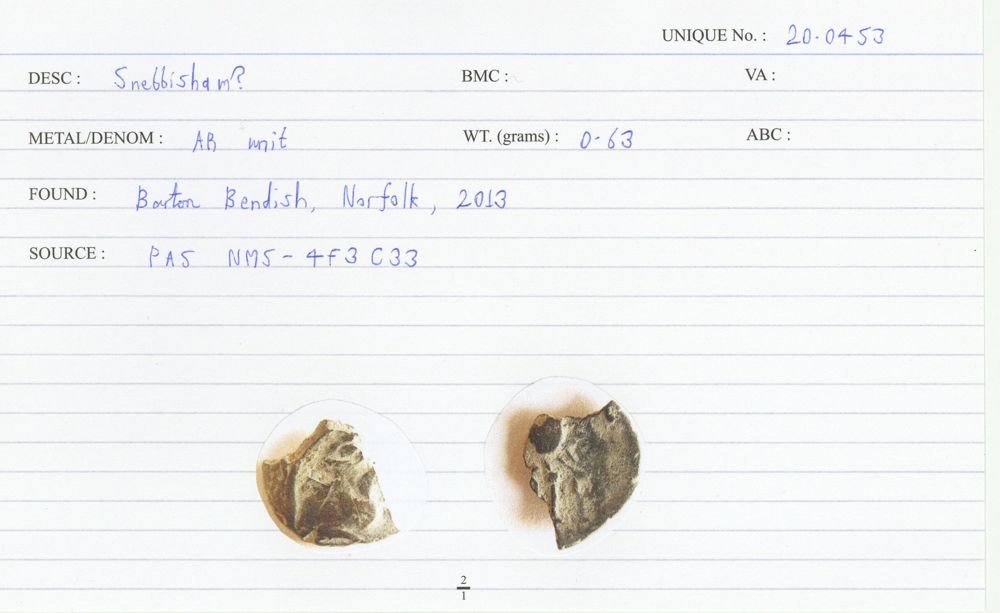 UNIQUE No. : 20.0453
DESC : Snebbisham? BMC : VA :
METAL/DENOM : AR unit WT. (grams) : 0.63 ABC :
FOUND : Barton Bendish, Norfolk, 2013
SOURCE : PAS NMS-4F3C33
2
1